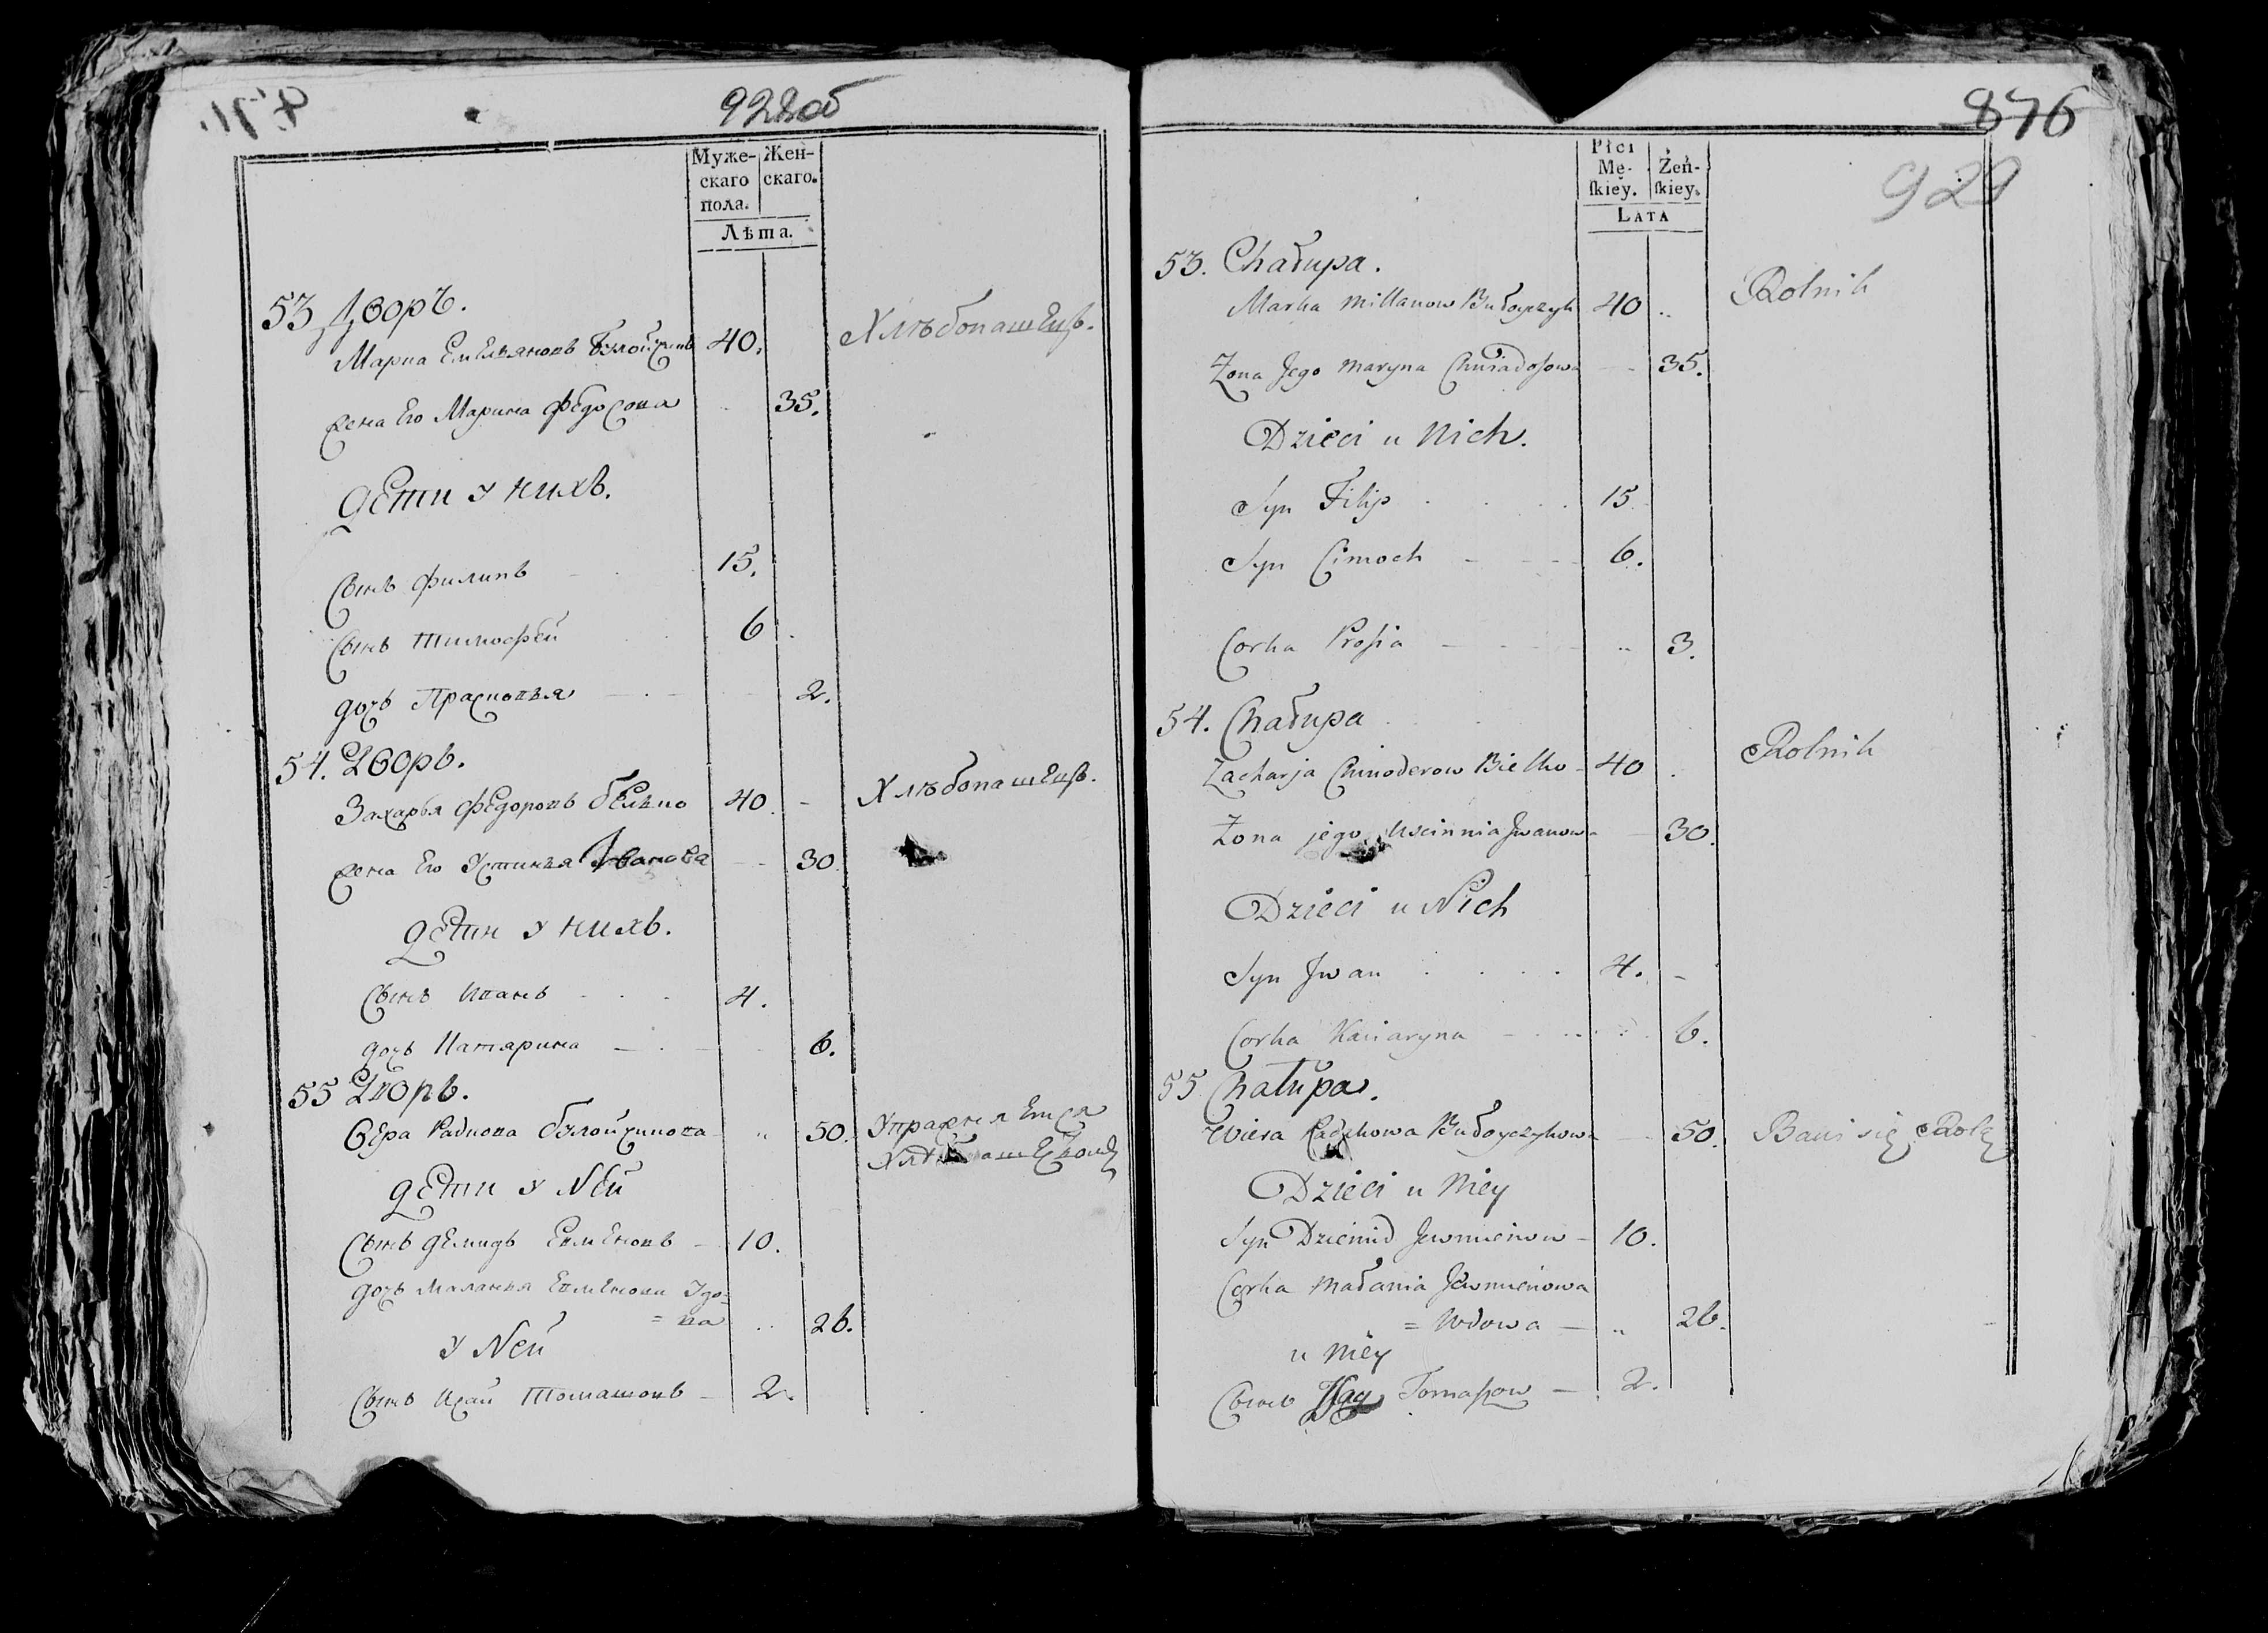 928об
Муже- Жен-
скаго скаго.
пола.
Лѣта.
53 Дворъ.
Марка Емельяновъ 40. Хлѣбопашецъ.
жена Его Марина Федосова 35.
дети у нихъ.
Сынъ Филипъ 15.
Сынъ Тимофей 6
дочь Прасковья 2.
54. Дворъ.
Захарья Федоровъ белько 40. Хлѣбопашецъ.
жена Его Устинья Иванова 30
дети у нихъ.
Сынъ Иванъ 4.
дочь Катярина 6.
55 Дворъ.
Вера Радкова 50. Упражняется
дети у Ней
Сынъ демидъ Евменовъ 10.
дочь Маланья Евменова удо=
=ва 26.
у Ней
Сынъ Исай Томашовъ 2.
876
929
Płci
Mę- Żeń-
ſkiey. ſkiey.
LATA
53. Chałupa.
Marka 40 Rolnik
Żona Jego Maryna 35.
Dzieci u Nich.
Syn Filip 15
Syn Cimoch 6.
Corka Prosia 3.
54. Chałupa
Zacharja Chwioderow Bielko 40 Rolnik
Żona jego Uscinnia Jwanowa 30.
Dzieci u Nich
Syn Jwan 4.
Corka Kaciaryna 6.
55 Chałupa.
Wiera Radzkowa 50. Bawi się Rolą
Dzieci u Niey
Syn Dziemid Jewmienow 10.
Corka Małania Jewmienowa
= Wdowa 26.
u Niey
Сынъ Tomaszow 2.